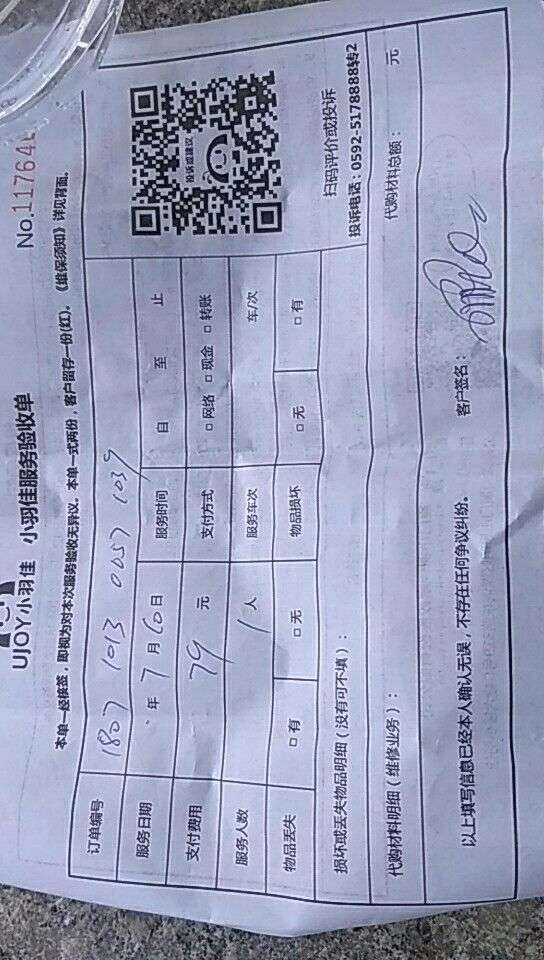 UJOY小羽佳 小羽佳服务验收单
No.117645
本单一经核签，即视为对本次服务验收无异议。本单一式两份，客户留存一份(红)。《维保须知》详见背面。
订单编号 1807 1013 0057 1039
服务日期 年 7 月 10 日 服务时间 自 至 止
支付费用 79 元 支付方式 □ 网络 □ 现金 □ 转账
服务人数 1 人 服务车次 车/次
物品丢失 □ 有 □ 无 物品损坏 □ 无 □ 有
投诉或建议
扫码评价或投诉
投诉电话：0592-5178888转2
损坏或丢失物品明细（没有可不填）：
代购材料明细（维修业务）： 代购材料总额： 元
以上填写信息已经本人确认无误，不存在任何争议纠纷。 客户签名：